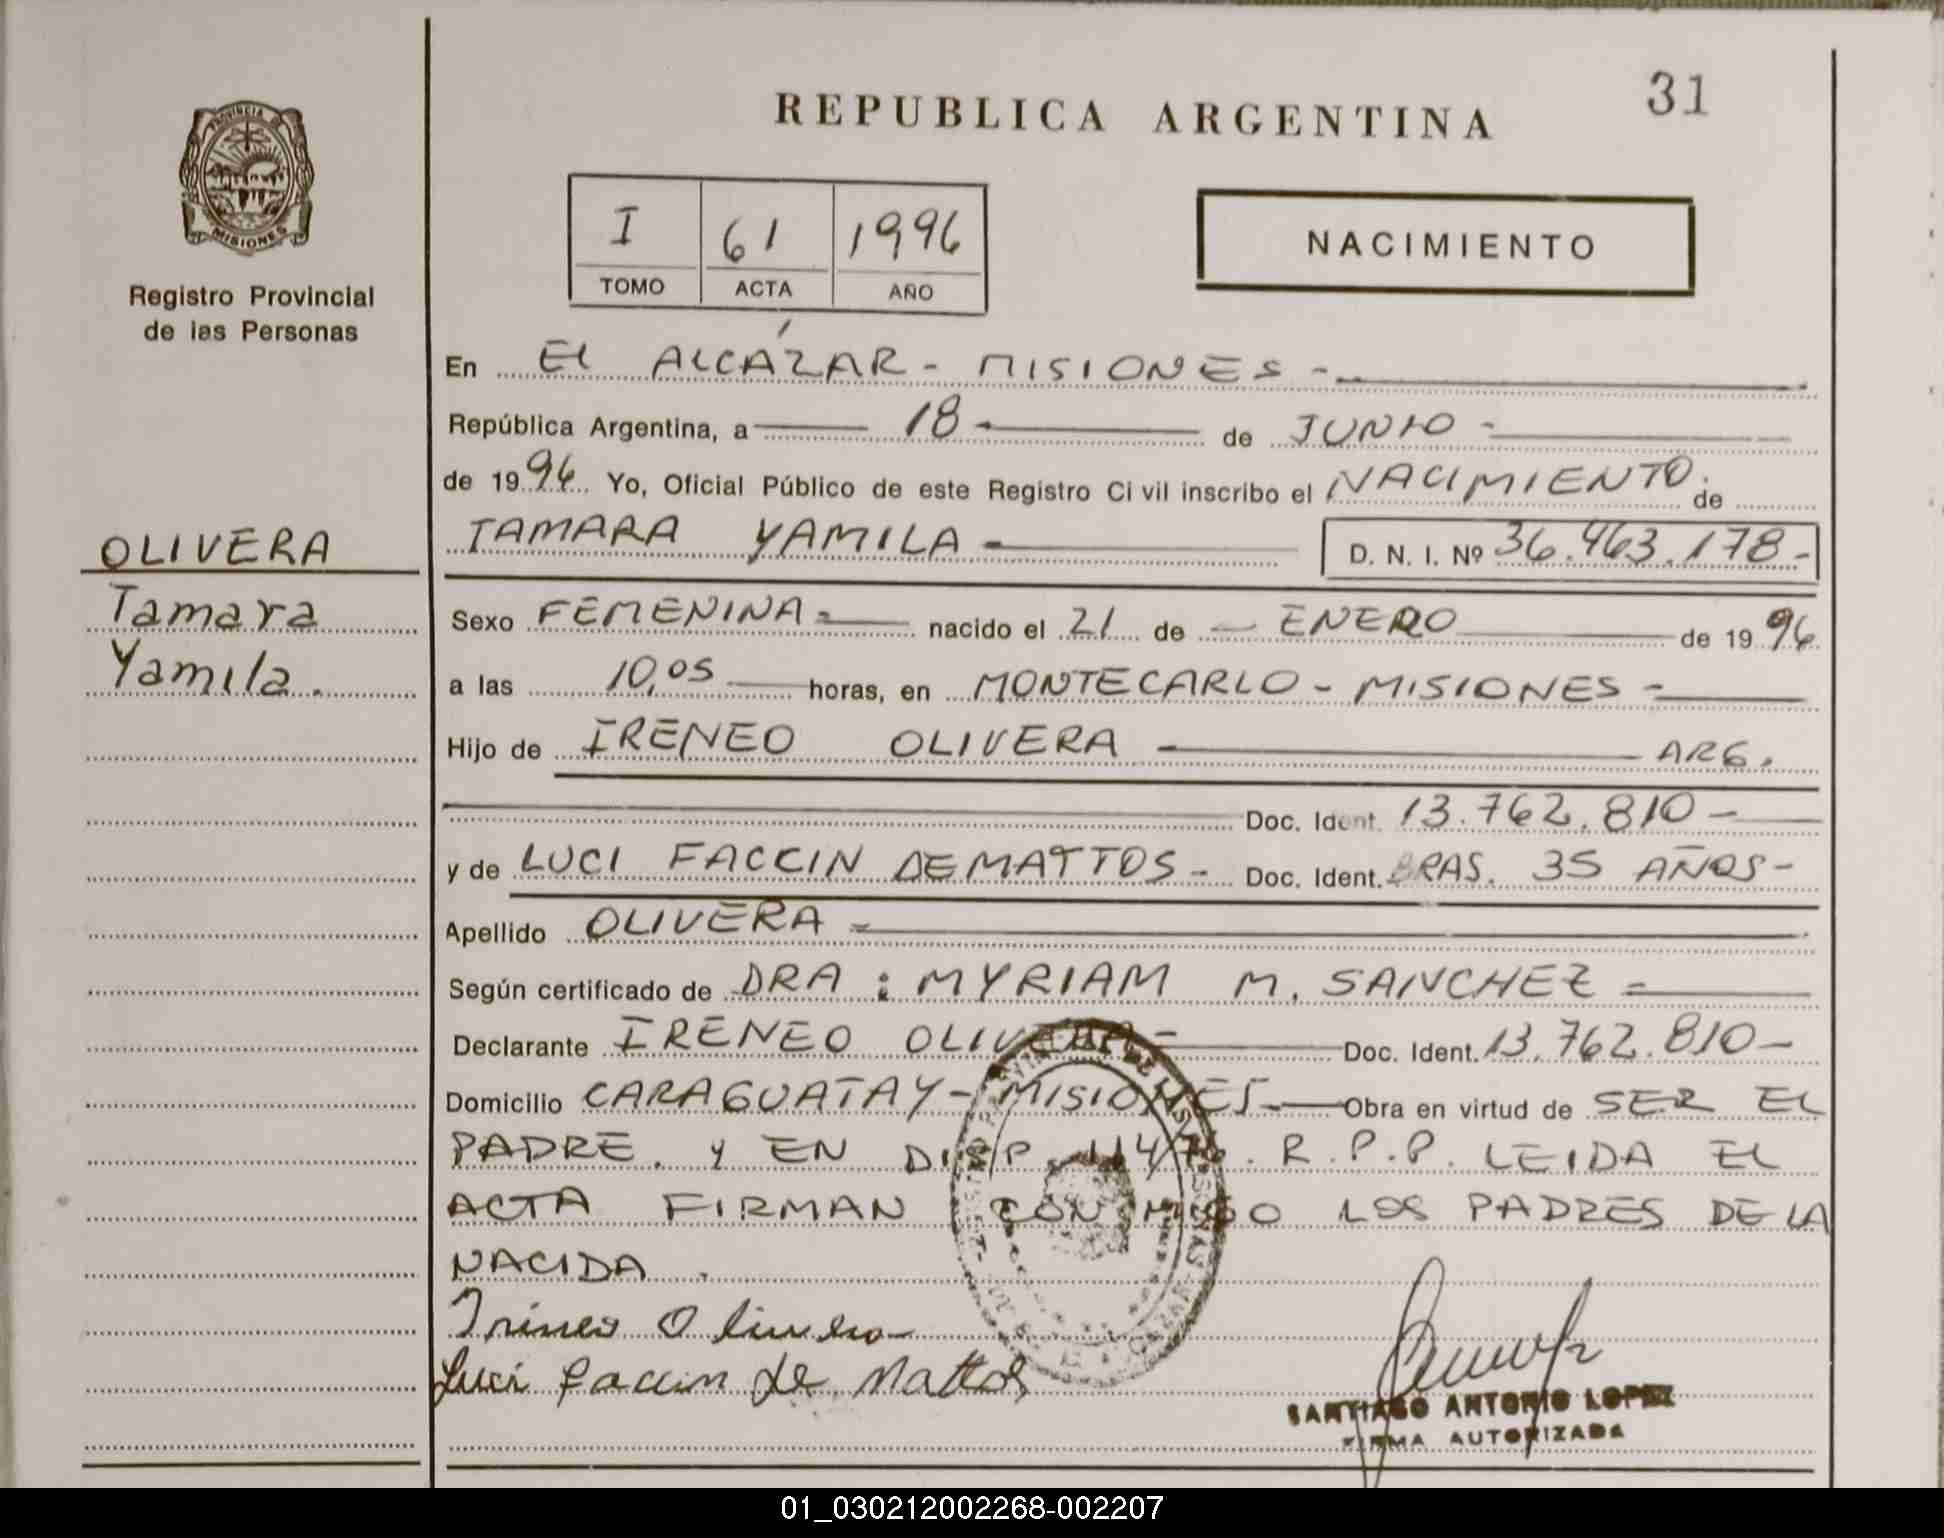 REPUBLICA ARGENTINA
31
PROVINCIA DE
MISIONES
Registro Provincial
de las Personas
I 61 1996
TOMO ACTA AÑO
NACIMIENTO
En EL ALCÁZAR - MISIONES -
República Argentina, a 18 - de JUNIO -
de 1996 Yo, Oficial Público de este Registro Civil inscribo el NACIMIENTO de
TAMARA YAMILA - D. N. I. Nº 36.463.178-
OLIVERA
Tamara
Yamila.
Sexo FEMENINA - nacido el 21 de - ENERO de 1996
a las 10,05 horas, en MONTECARLO - MISIONES -
Hijo de IRENEO OLIVERA - ARG.
Doc. Ident. 13.762.810 -
y de LUCI FACCIN DE MATTOS - Doc. Ident. BRAS. 35 AÑOS -
Apellido OLIVERA -
Según certificado de DRA : MYRIAM M. SANCHEZ -
Declarante IRENEO OLIVERA - Doc. Ident. 13.762.810 -
Domicilio CARAGUATAY - MISIONES - Obra en virtud de SER EL
PADRE. Y EN DISP. 114/76. R.P.P. LEIDA EL
ACTA FIRMAN CONMIGO LOS PADRES DE LA
NACIDA.
Irineo Olivera
Luci Faccin de Mattos
SANTIAGO ANTONIO LOPEZ
FIRMA AUTORIZADA
01_030212002268-002207